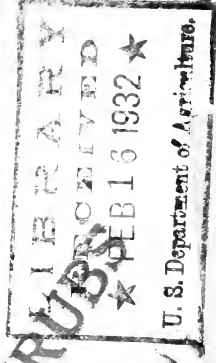 LIBRARY
RECEIVED
★ FEB 16 1932 ★
U. S. Department of Agriculture.